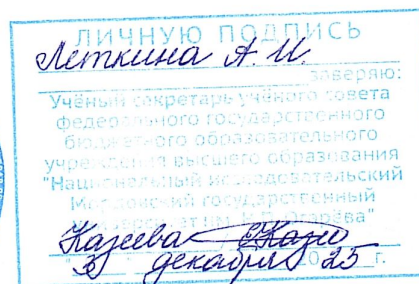 ЛИЧНУЮ ПОДПИСЬ
Леткина А. И.
заверяю:
Учёный секретарь учёного совета
федерального государственного
бюджетного образовательного
учреждения высшего образования
"Национальный исследовательский
Мордовский государственный
университет им. Н.П. Огарёва"
Казеева
"3" декабря 2025 г.